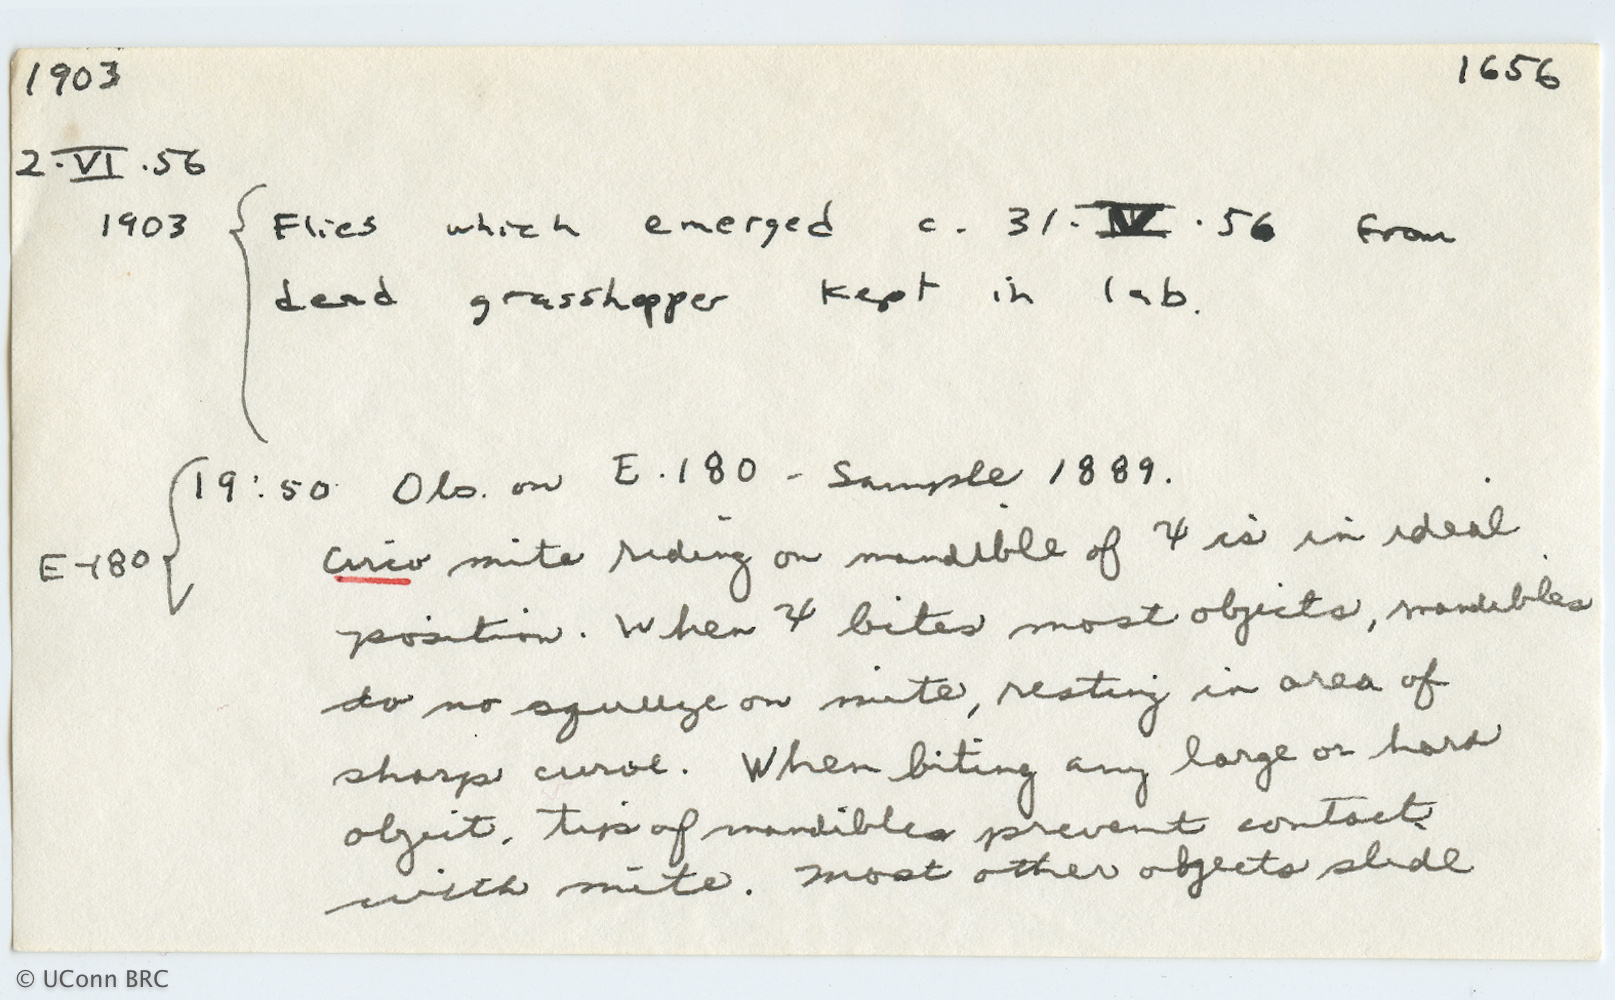 1903 1656
2·VI·56
1903 { Flies which emerged c. 31·IV·56 from
dead grasshopper kept in lab.
19:50 Obs. on E.180 - Sample 1889.
E-180 { Circo mite riding on mandible of ♃ is in ideal
position. When ♃ bites most objects, mandibles
do no squeeze on mite, resting in area of
sharp curve. When biting any large or hard
object, tips of mandibles prevent contact
with mite. Most other objects slide
© UConn BRC